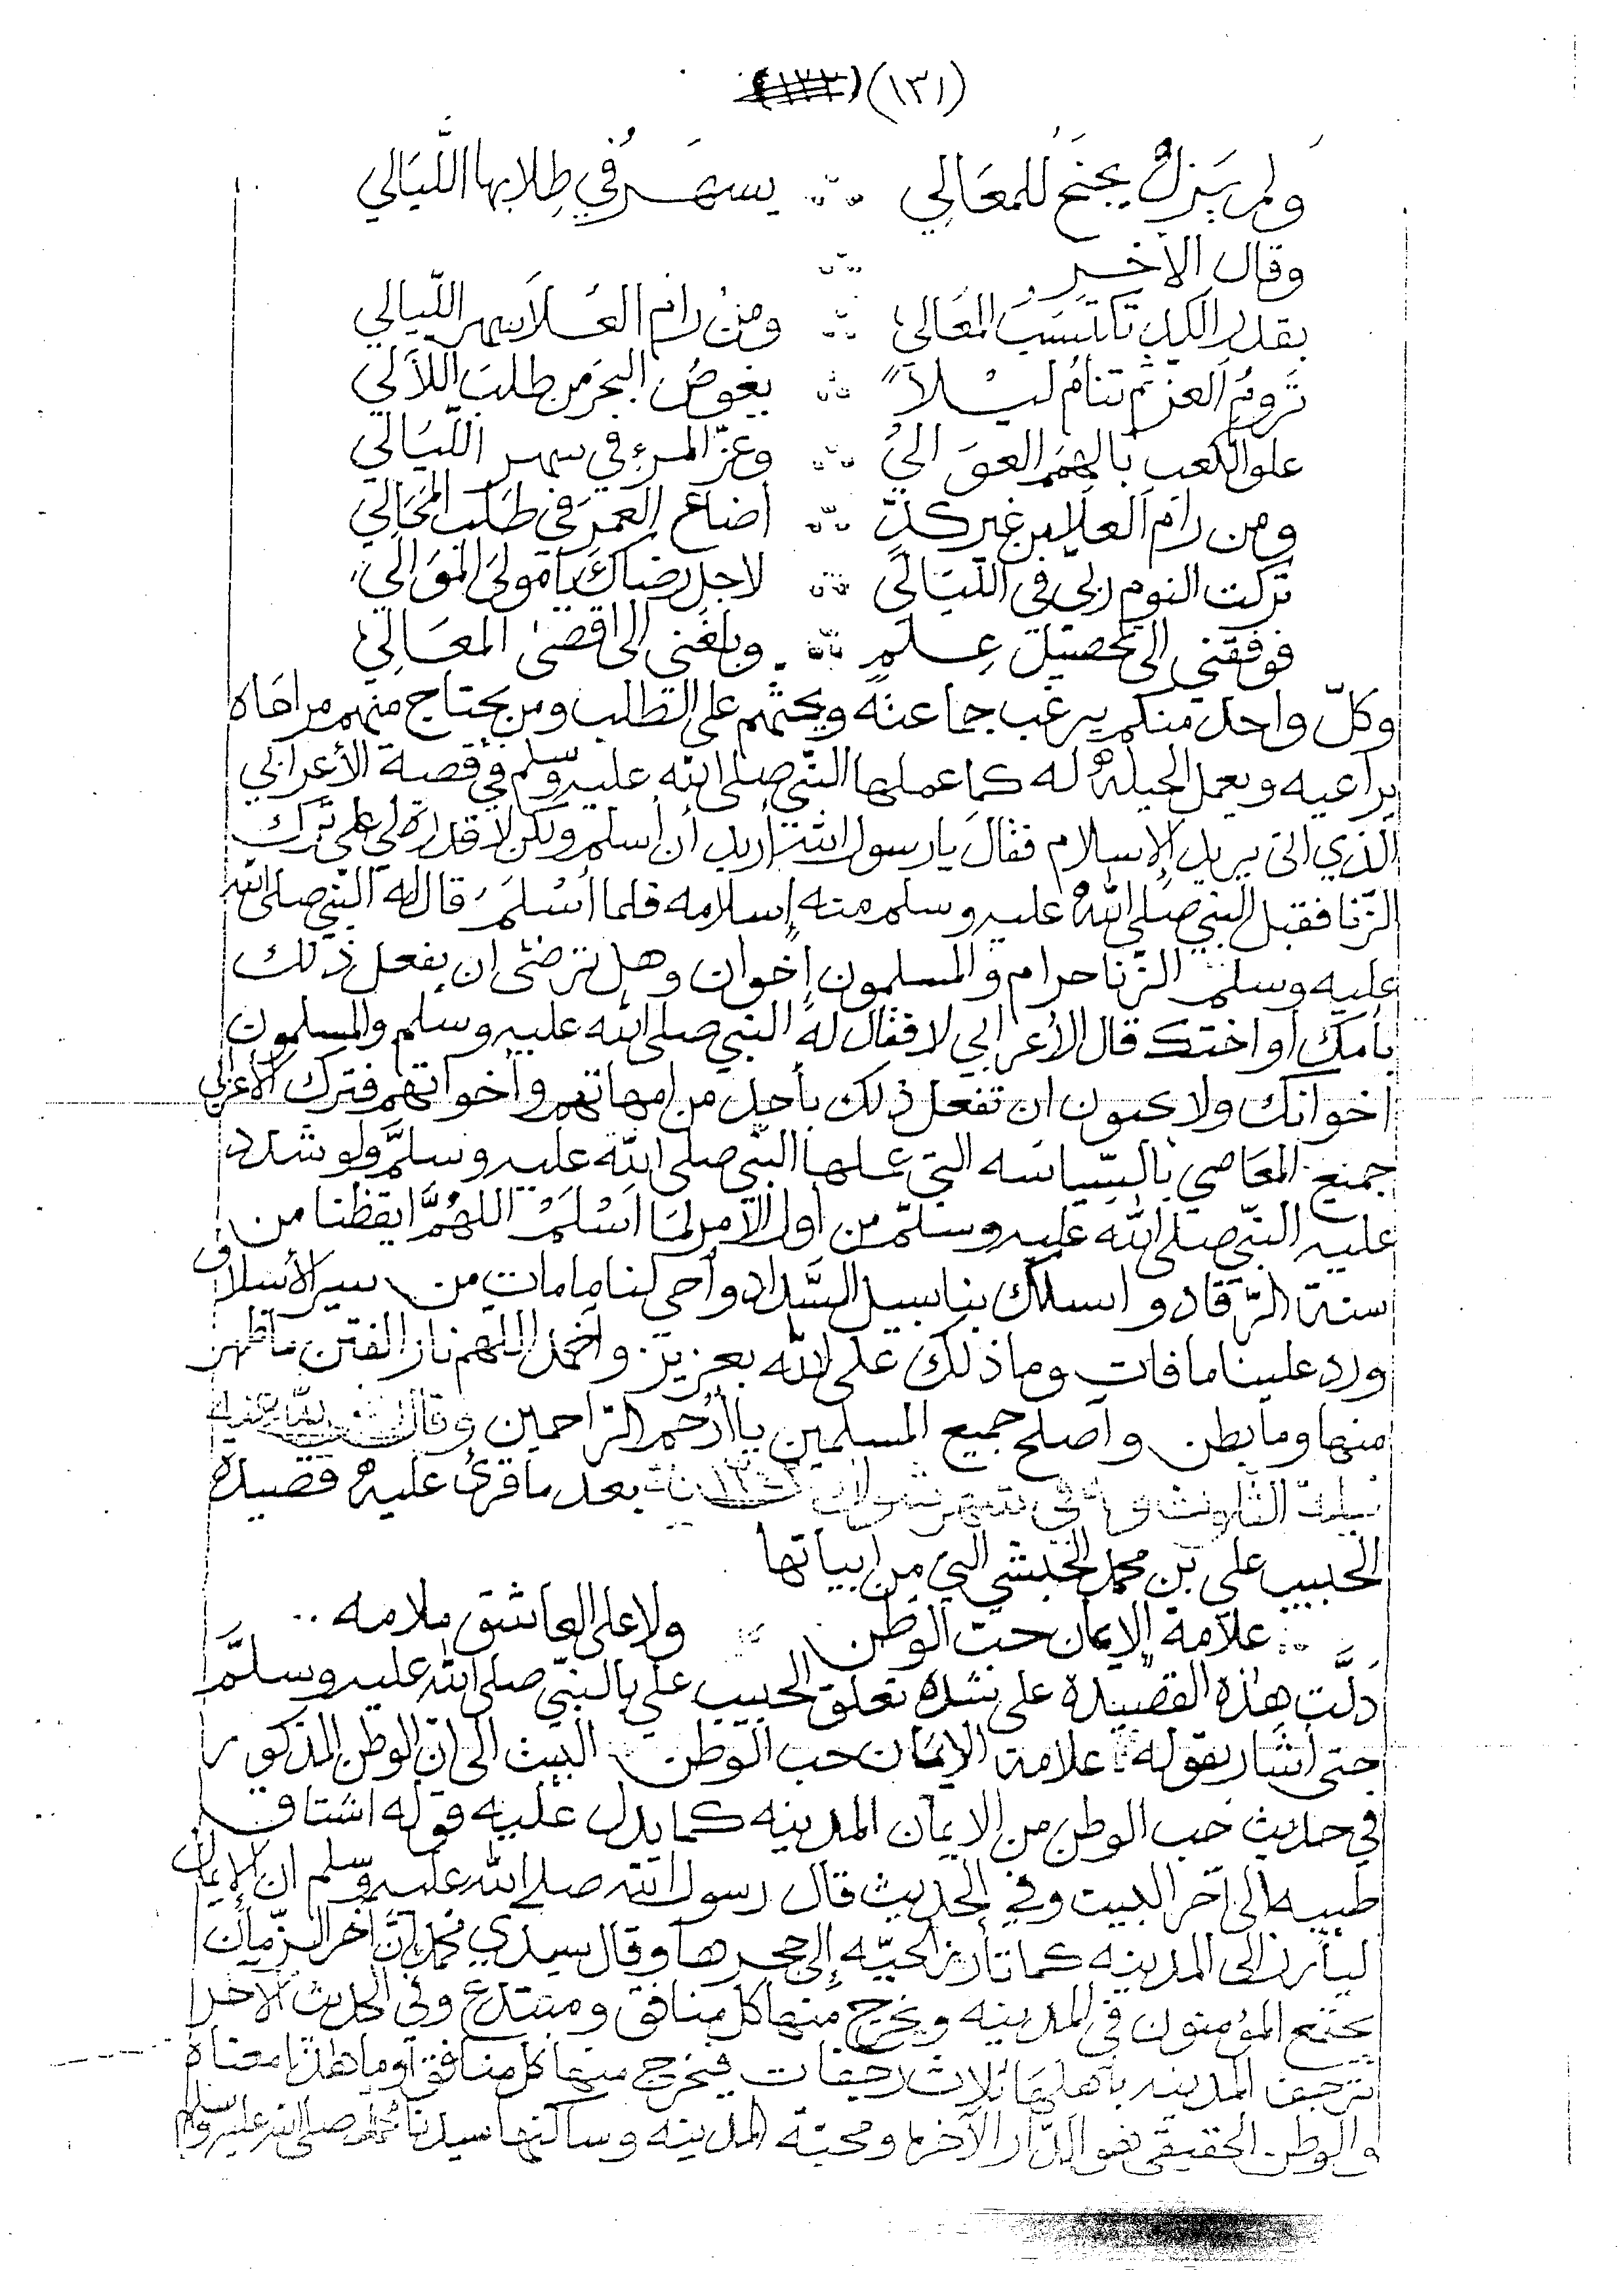 (١٣١)
ولم يَزلْ يجنَحُ للمعَالِي ∴ يسهَر في طِلابها اللَّيَالي
وقال الآخر
بقدر الكدِ تكتسَبُ المَعَالي ∴ ومن رام العُلَا سهر اللّيالي
تَرومُ العز ثم تنامُ ليْلاً ∴ يغوصُ البحَر من طلبَ اللآلي
علو الكعب بالهمم العوَالي ∴ وعزّ المرء في سهر اللّيَالي
ومن رامَ العلَا من غير كدٍّ ∴ أضاع العمرَ في طلَب المحَالي
تركت النوم ربي في اللّيَالي ∴ لاجل رضاكَ يامولى المَوَالي
فوفقني الى تحصيل عِلمٍ ∴ وبلغني الى اقصى المعَالِي
وكلّ واحد منكم يرغب جماعته ويحثهم على الطلب ومن يحتاج منهم مراعاه
يراعيه ويعمل الحيلة له كما عملها النّبي صلى الله عليه وسلم في قصة الأعرابي
الذي اتى يريد الإسلام فقال يا رسول الله أريد أن أسلم ولكن لا قدرة لي على ترك
الزّنا فقبل النبي صلى اللهُ عليه وسلم منه إسلامه فلما أسْلَمَ قال له النّبي صلى الله
عليه وسلم الزّنا حرام والمسلمون إخوان وهل ترضى ان يفعل ذلك
بأمك أو اختك قال الأعرابي لا فقال له النبي صلى الله عليه وسلم والمسلمون
اخوانك ولا يحبون ان تفعل ذلك بأحدٍ من امهاتهم وأخواتهم فترك الأعرابي
جميع المعَاصي بالسّياسَه التي عملها النّبي صلى الله عليه وسلَّم ولو شدد
عليه النّبي صلى الله عليه وسلّم من أول الأمر لمَا اَسْلَمْ اللهُمَّ ايقظنا من
سنة الرّقاد و اسلك بنا سبيل السَّداد وأحي لنا ما مات من سير الأسلاف
ورد علينا ما فات وما ذلك على الله بعزيز وأخمد اللهم نار الفتن ما ظهر
منها وما بطن وأصلح جميع المسلمين يا أرحم الرّاحمين وقال
ليلة الثلوث و في شهر شوال بعد ما قرئ عليه قصيدة
الحبيب علي بن محمد الحبشي التي من أبياتها
علامة الإيمان حب الوطن ∴ ولا على العاشق ملامه ..
دَلَّت هذه القصيدة على شدة تعلق الحبيب علي بالنبّي صلى الله عليه وسلَّم
حتى أشار بقوله علامة الإيمَان حب الوطن البيت الى انّ الوطن المذكور
في حديث حب الوطن من الايمان المدينه كما يدل عليه قوله اشتاق
طيبه الى آخر البيت وفي الحديث قال رسول الله صلى الله عليه وسلم ان الإيمان
ليأرز الى المدينه كما تأرز الحيّه إلى جحرها وقال سيدي محمد إنَّ آخر الزّمان
يجتمع المؤمنون في المدينه ويخرج منها كل منافق ومبتدع وفي الحديث الآخر
ترجف المدينه بأهلها ثلاث رجفات فيخرج منها كل منافق أو ما هذا معناه
والوطن الحقيقي هو الدّار الآخره ومحبّة المدينه وساكنها سيدنا محمد صلى الله عليه وسلم